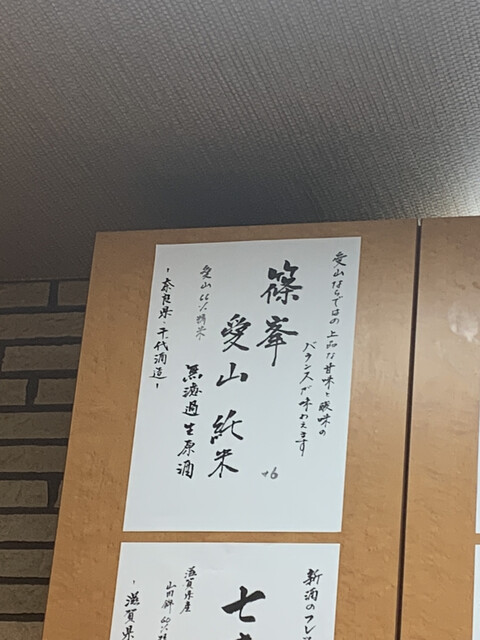 愛山ならではの上品な甘味と酸味の
バランスが味わえます
篠峯
愛山 純米
無濾過生原酒
+6
愛山66%精米
-奈良県・千代酒造-
新酒のフレ
七
滋賀県産
山田錦60%精
-滋賀県